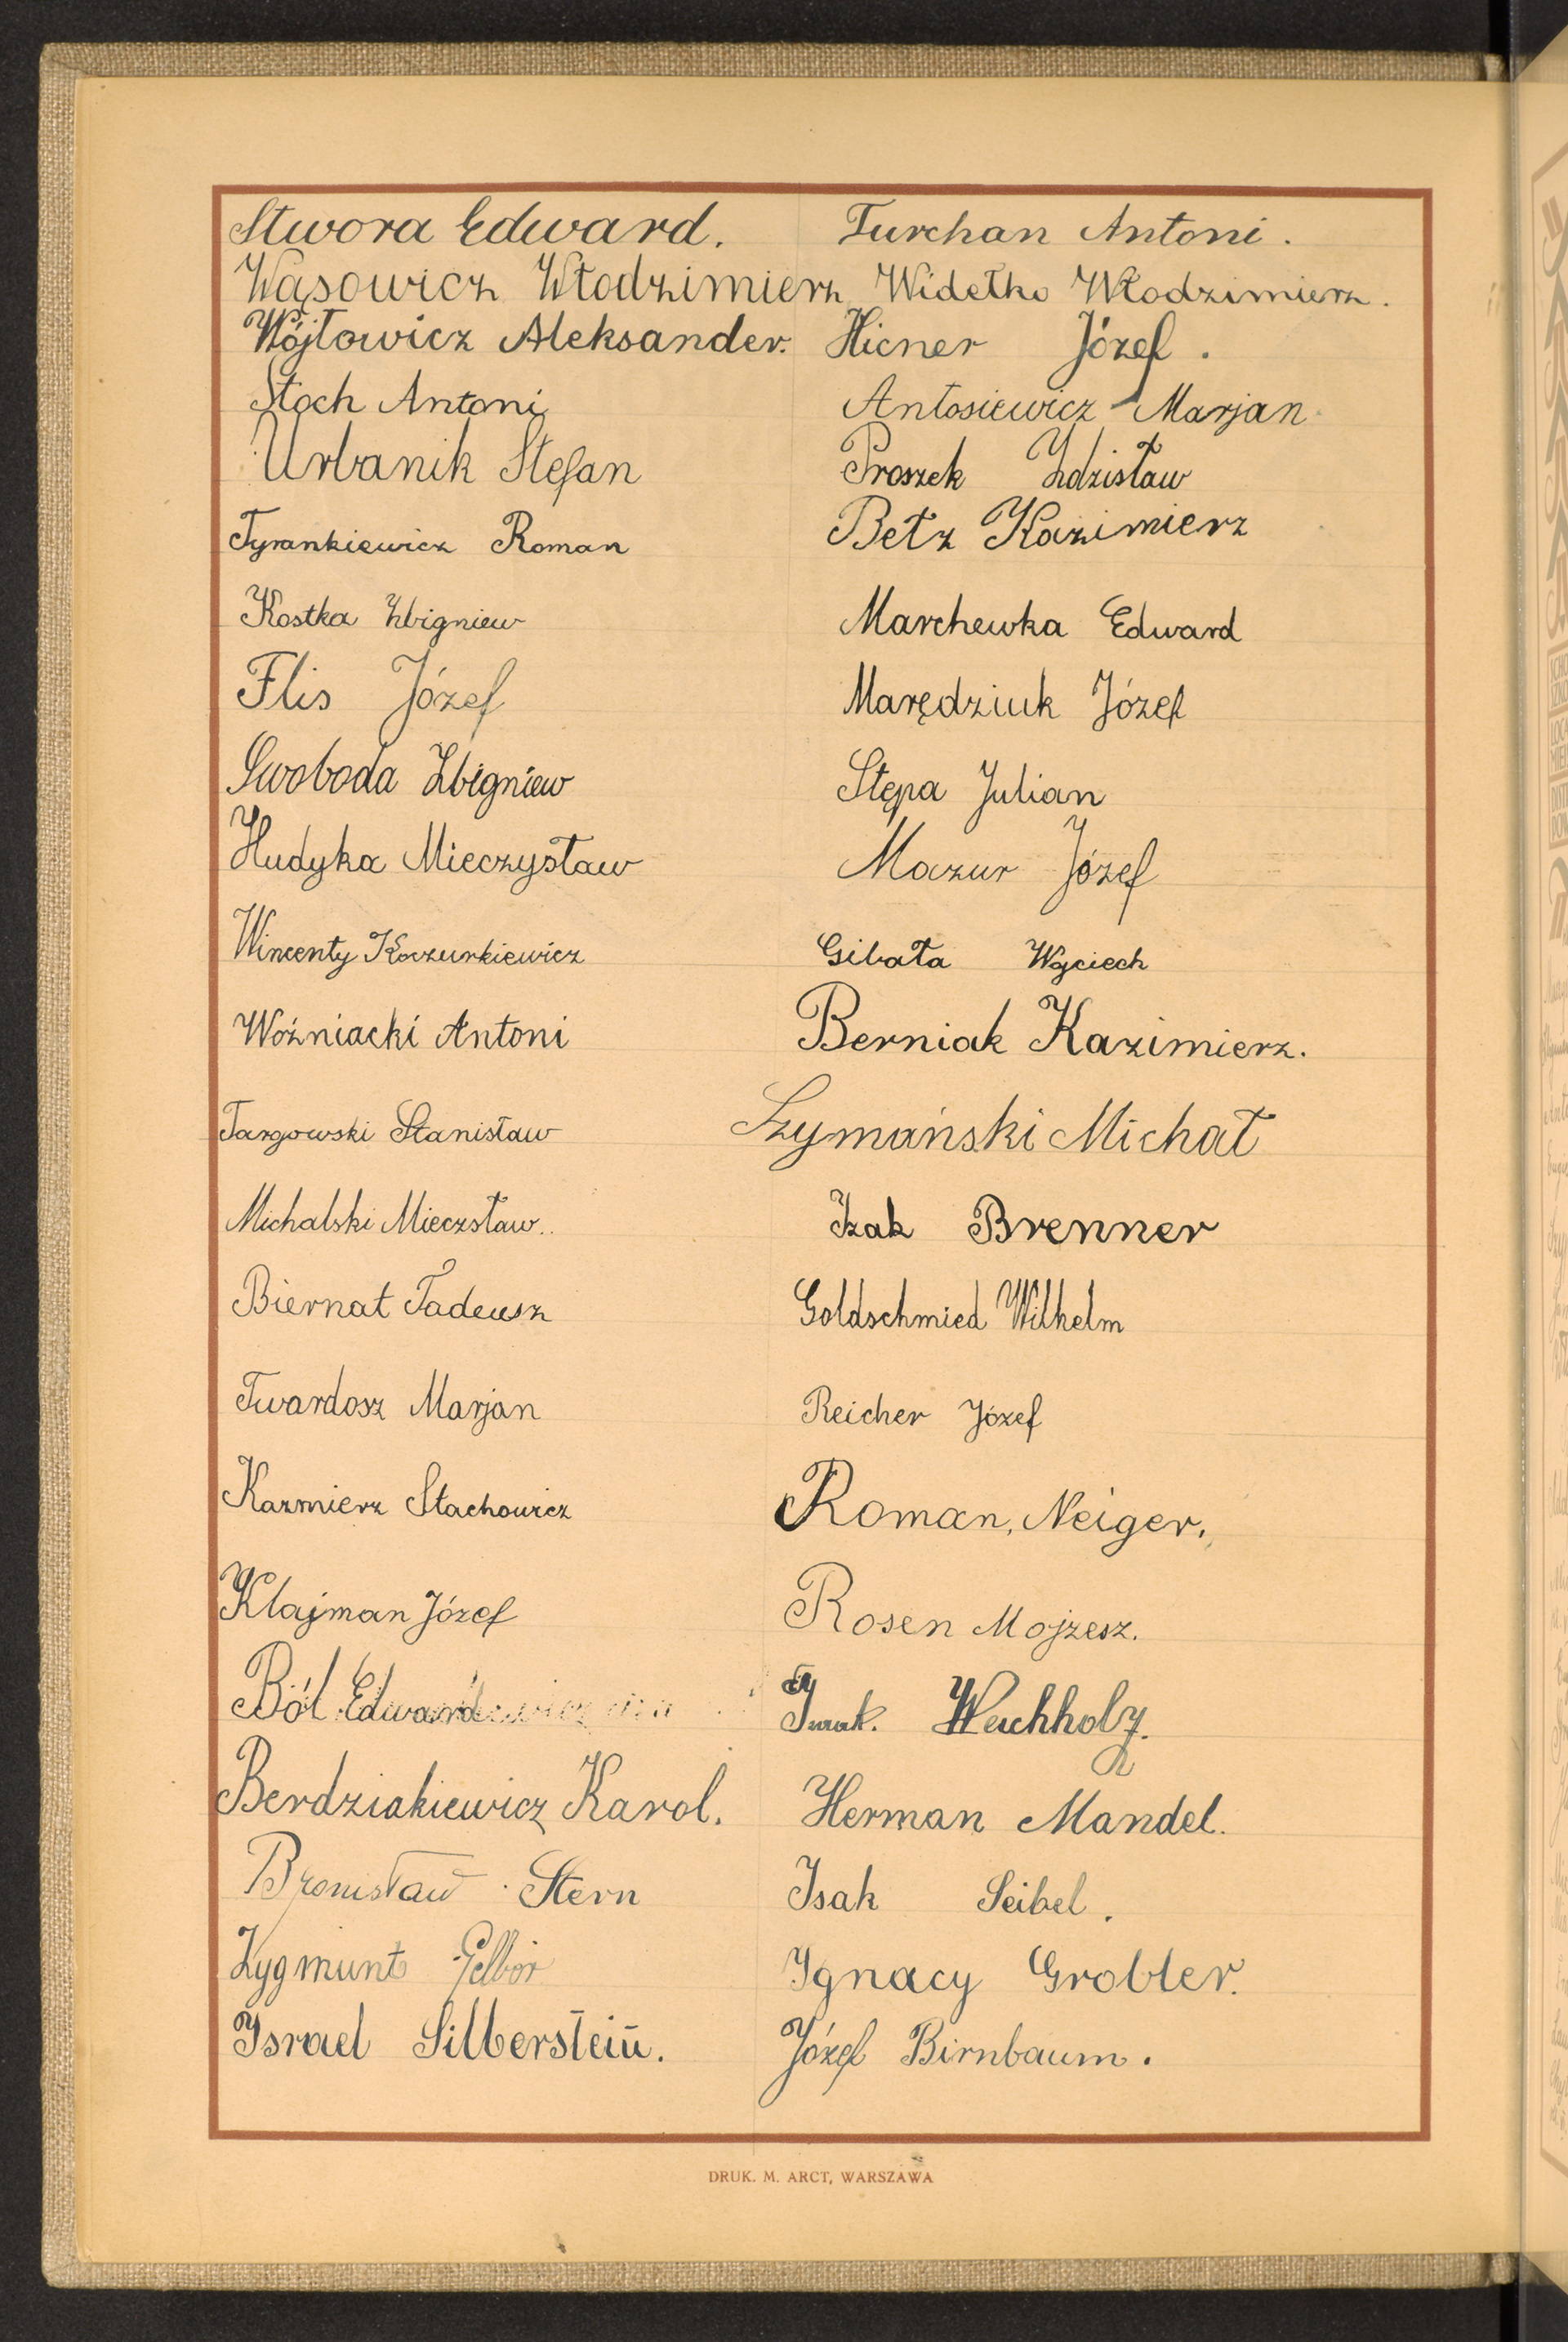 Stwora Edward.
Wąsowicz Włodzimierz
Wójtowicz Aleksander.
Stoch Antoni
Urbanik Stefan
Tyrankiewicz Roman
Kostka Zbigniew
Flis Józef
Swoboda Zbigniew
Hudyka Mieczysław
Wincenty Koczurkiewicz
Woźniacki Antoni
Targowski Stanisław
Michalski Mieczsław..
Biernat Tadeusz
Twardosz Marjan
Kazmierz Stachowicz
Klajman Józef
Ból Edward
Berdziakiewicz Karol.
Bronisław Stern
Zygmunt Gelbór
Israel Silberstein.
Turchan Antoni.
Widełko Włodzimierz.
Hicner Józef.
Antosiewicz Marjan
Proszek Zdzisław
Betz Kazimierz
Marchewka Edward
Marędziuk Józef
Stępa Julian
Mazur Józef
Gibała Wojciech
Berniak Kazimierz.
Szymański Michał
Izak Brenner
Goldschmied Wilhelm
Reicher Józef
Roman, Neiger.
Rosen Mojzesz.
Wachholz.
Herman Mandel.
Isak Seibel.
Ignacy Grobler.
Józef Birnbaum.
DRUK. M. ARCT, WARSZAWA